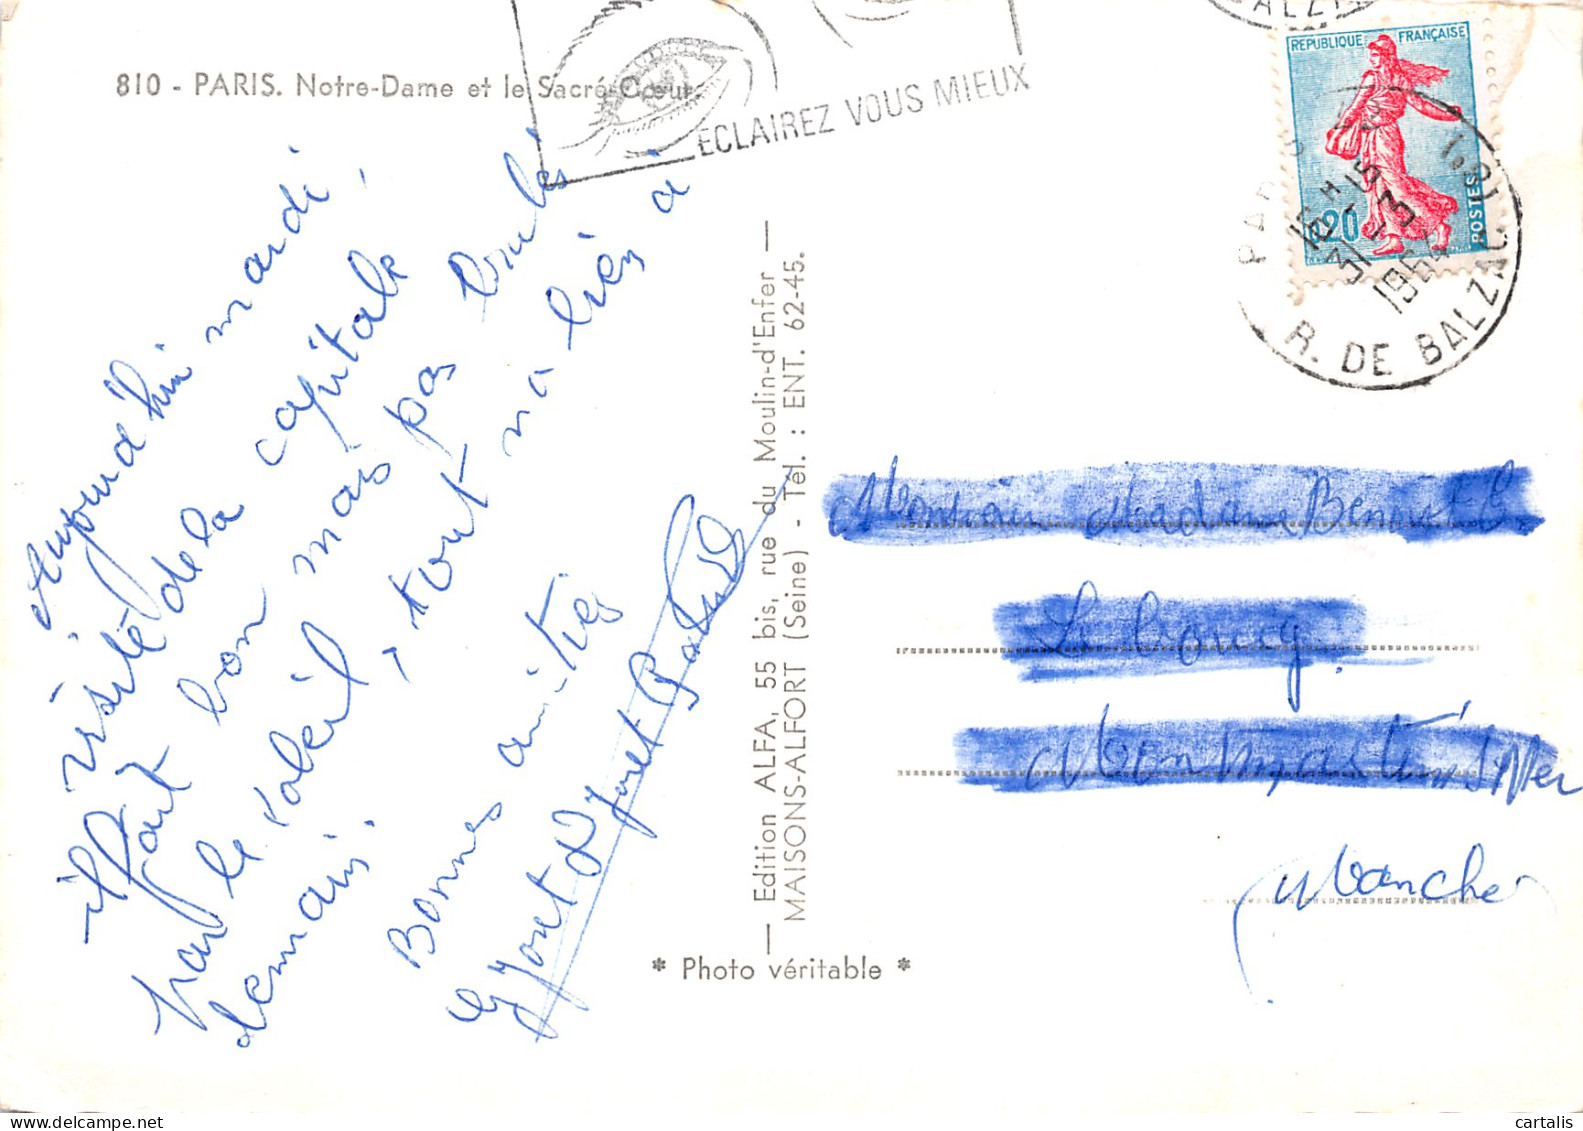 810 - PARIS. Notre-Dame et le Sacré-Cœur.
ECLAIREZ VOUS MIEUX
REPUBLIQUE FRANÇAISE
0,20
POSTES
R. DE BALZAC (8e)
16H15
31-3
Aujourd'hui mardi,
visite de la capitale
il fait bon mais pas brulés
par le soleil, tout va bien à
demain.
Bonnes amitiés
— Edition ALFA, 55 bis, rue du Moulin-d'Enfer —
MAISONS-ALFORT (Seine) - Tél. : ENT. 62-45.
* Photo véritable *
Madame
Le bourg
Manche
cartalis